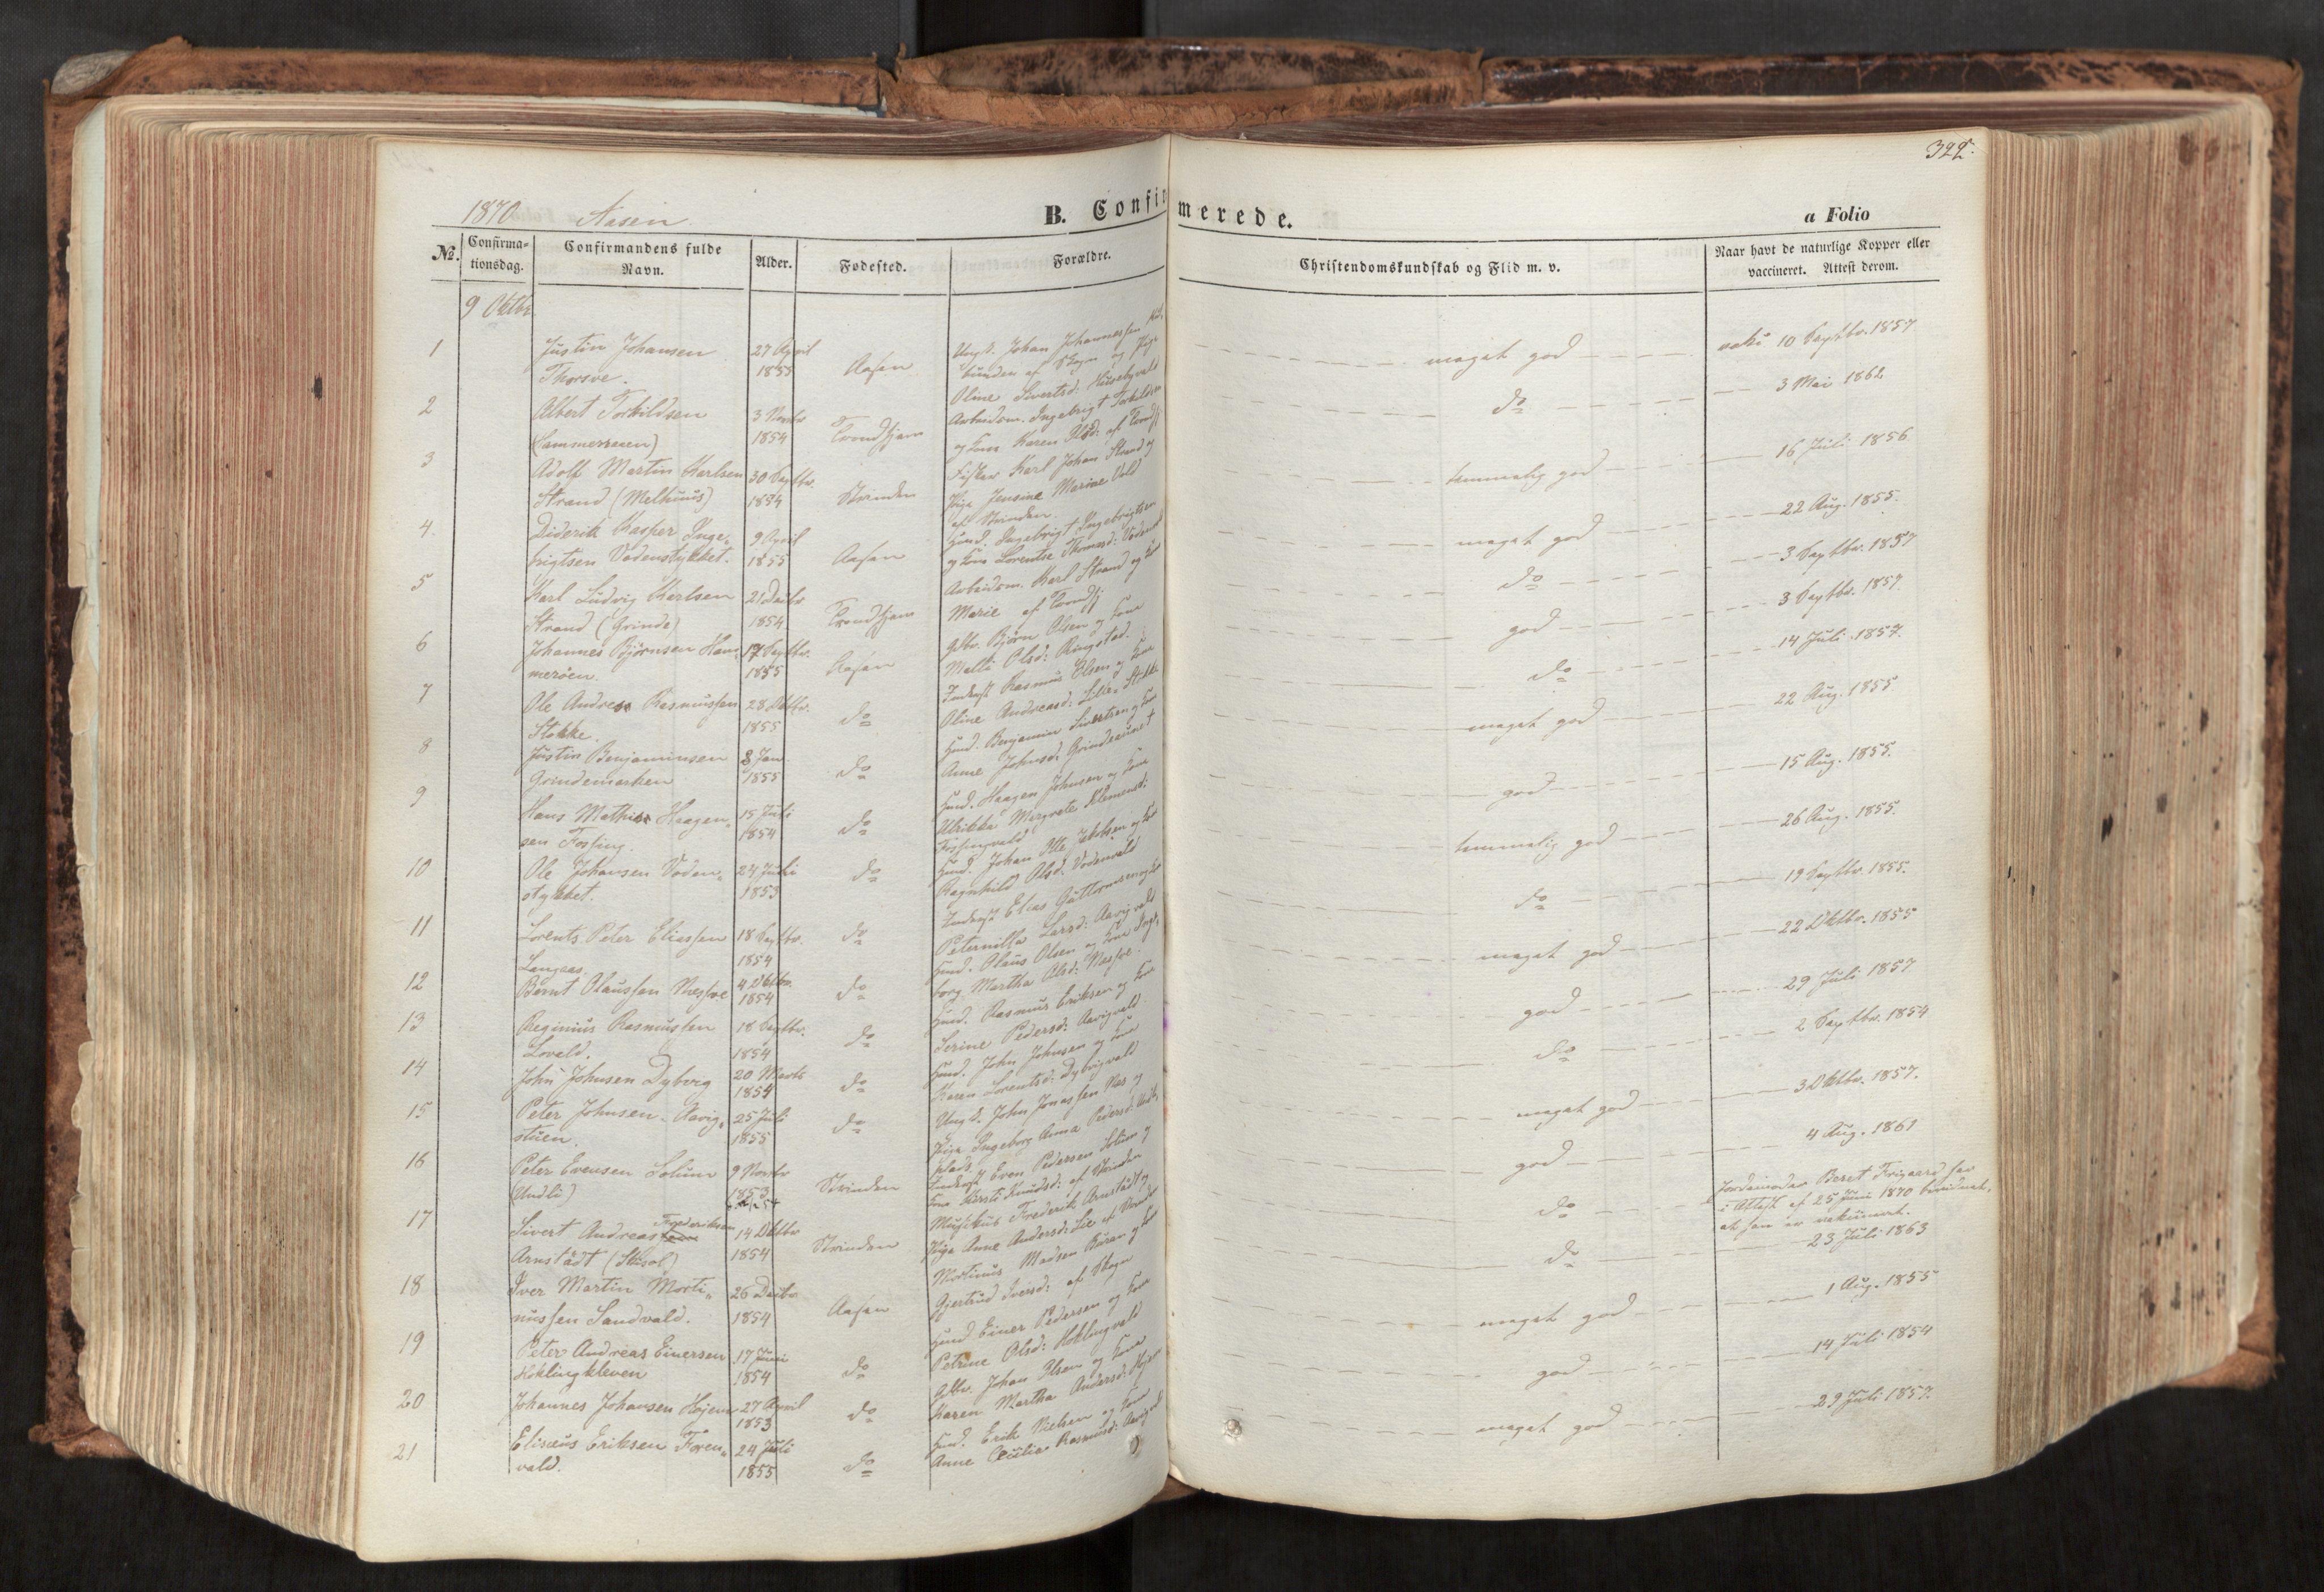 322.
1870 Aasen.
B. Confirmerede.
a Folio
No. Confirma-tionsdag. Confirmandens fulde Navn. Alder. Fødested. Forældre. Christendomskundskab og Flid m. v. Naar havt de naturlige Kopper eller vaccineret. Attest derom.
9 Oktbr
1 Justin Johansen 27 April Aasen Ungk. Johan Johannessen meget god 10 Septbr. 1857
Thorsve. 1855 af Skogn og Pige
Oline Sivertsd: Husebyvald
2 Albert Torkildsen 3 Novbr Trondhjem Arbeidsm. Ingebrigt Torkildsen do 3 Mai 1862
(Hammermoen) 1854 og Kone Karen Olsd: af Trondhj.
3 Adolf Martin Karlsen 30 Septbr. Strinden Fisker Karl Johan Strand og temmelig god 16 Juli 1856
Strand (Melhuus) 1854 Pige Jensine Marine Vold
af Strinden.
4 Diderik Kasper Inge- 9 April Aasen Huusm. Ingebrigt Ingebrigtsen meget god 22 Aug. 1855.
brigtsen Vodenstykket. 1855 og Kone Lorentse Thomasd:
5 Karl Ludvig Karlsen 21 Decbr Trondhjem Arbeidsm. Karl Strand og Kone do 3 Septbr. 1857
Strand (Grinde) 1854 Marie af Trondhj.
6 Johannes Bjørnsen Ham- 17 Septbr. Aasen Gbr. Bjørn Olsen og Kone god 3 Septbr. 1857.
merøen. 1855 Malla Olsd: Ringstad.
7 Ole Andreas Rasmussen 28 Oktbr. do Inderst Rasmus Olsen og Kone do 14 Juli 1857.
Stokke. 1855 Oline Andreasd: Lille-Stokke
8 Justin Benjaminsen 8 Jan do Husm. Benjamin Sivertsen og Kone meget god 22 Aug. 1855
Grindemarken 1855 Anne Johnsd: Grindeaunet
9 Hans Mathias Haagen- 15 Juli do Husm. Haagen Johnsen og Kone god 15 Aug. 1855.
sen Fossing. 1854 Ulrikka Margrete Klemensd:
Fossingvald
10 Ole Johansen Voden- 24 Juli do Husm. Johan Olle Jakobsen og Kone temmelig god 26 Aug. 1855.
stykket. 1853 Ragnhild Olsd. Vodenvald
11 Lorents Peter Eliassen 18 Septbr. do Inderst Elias Guttormsen og Kone do 19 Septbr. 1855.
Langaas 1854 Peternilla Larsd: Aavigvald
12 Bernt Olaussen Nessve 4 Oktbr. do Husm. Olaus Olsen og Kone Inge- meget god 22 Oktbr. 1855
1854 borg Martha Olsd: Nessve.
13 Reginius Rasmussen 18 Septbr. do Husm. Rasmus Eriksen og Kone god 29 Juli 1857
Lovald. 1854 Serine Pedersd: Aavigvald.
14 John Johnsen Dyberg 20 Marts do Husm. John Johnsen og Kone do 2 Septbr. 1854
1854 Karen Lorentsd: Dybvigvald
15 Peter Johnsen Aavig- 25 Juli do Ungk. John Jonassen Næs og meget god 3 Oktbr. 1857.
stuen. 1855 Pige Ingeborg Anna Pedersd:
plads.
16 Peter Evensen Solum 9 Novbr Strinden Inderst Even Pedersen Solum og god 4 Aug. 1861
(Undli) 1853 Kone Kirsti Knudsd: af Strinden
17 Sivert Andreas Frederiksen 14 Oktbr Strinden Musikus Frederik Arnstadt og do Jordemoder Beret Frigaard har
i Attest af 25 Juni 1870 bevidnet,
at han er vakcineret.
Arnstadt (Skjesol) 1854 Pige Anne Andersd: Lie af
18 Iver Martin Morti- 26 Decbr Aasen Mortinus Madsen Buran og do 23 Juli 1863
nussen Sandvald. 1854 Gjertrud Iversd: af Skogn
19 Peter Andreas Einersen 17 Juni do Husm Einer Pedersen og Kone meget god 1 Aug. 1855
Hoklingkleven 1854 Petrine Olsd: Hoklingvald
20 Johannes Johansen Højem 27 April do Gbr. Johan Olsen og Kone god 14 Juli 1854
1853 Karen Martha Andersd: Højem
21 Elisæus Eriksen Foren- 24 Juli do Husm. Erik Nielsen og Kone meget god 29 Juli 1857.
vald. 1855 Anne Cecilia Rasmusd: Aavigvald